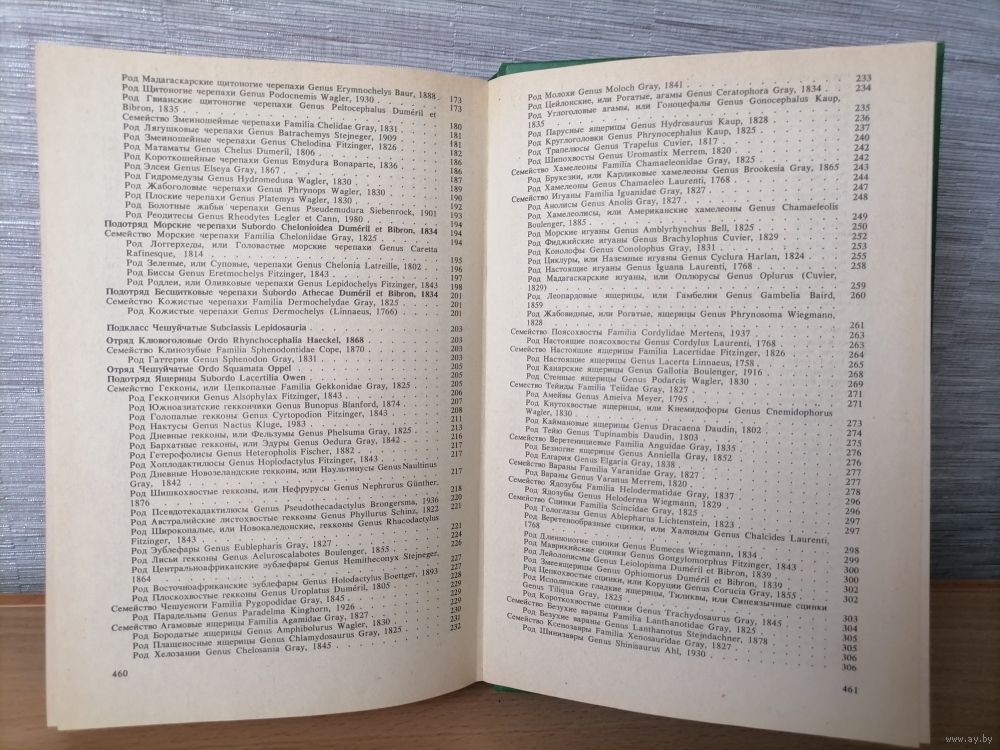 Род Мадагаскарские щитоногие черепахи Genus Erymnochelys Baur, 1888 . 173
Род Щитоногие черепахи Genus Podocnemis Wagler, 1930 . . . . 173
Род Гвианские щитоногие черепахи Genus Peltocephalus Duméril et
Bibron, 1835 . . . . 180
Семейство Змеиношейные черепахи Familia Chelidae Gray, 1831 . . 181
Род Лягушковые черепахи Genus Batrachemys Stejneger, 1909 . . 181
Род Змеиношейные черепахи Genus Chelodina Fitzinger, 1826 . . 182
Род Матаматы Genus Chelus Duméril, 1806 . . . . 186
Род Короткошейные черепахи Genus Emydura Bonaparte, 1836 . . 186
Род Элсеи Genus Elseya Gray, 1867 . . . . 187
Род Гидромедузы Genus Hydromedusa Wagler, 1830 . . . . 189
Род Жабоголовые черепахи Genus Phrynops Wagler, 1830 . . . . 190
Род Плоские черепахи Genus Platemys Wagler, 1830 . . . . 192
Род Болотные жабьи черепахи Genus Pseudemudura Siebenrock, 1901 193
Род Реодитесы Genus Rheodytes Legler et Cann, 1980 . . . . 194
Подотряд Морские черепахи Subordo Chelonioidea Duméril et Bibron, 1834 194
Семейство Морские черепахи Familia Cheloniidae Gray, 1825 . . . . 194
Род Логгерхеды, или Головастые морские черепахи Genus Caretta
Rafinesque, 1814 . . . . 195
Род Зеленые, или Суповые, черепахи Genus Chelonia Latreille, 1802 . 196
Род Биссы Genus Eretmochelys Fitzinger, 1843 . . . . 197
Род Ридлеи, или Оливковые черепахи Genus Lepidochelys Fitzinger, 1843 198
Подотряд Бесщитковые черепахи Subordo Athecae Duméril et Bibron, 1834 201
Семейство Кожистые черепахи Familia Dermochelydae Gray, 1825 . . 201
Род Кожистые черепахи Genus Dermochelys (Linnaeus, 1766) . . . . 201
Подкласс Чешуйчатые Subclassis Lepidosauria . . . . 203
Отряд Клювоголовые Ordo Rhynchocephalia Haeckel, 1868 . . . . 203
Семейство Клинозубые Familia Sphenodontidae Cope, 1870 . . . . 203
Род Гаттерии Genus Sphenodon Gray, 1831 . . . . 203
Отряд Чешуйчатые Ordo Squamata Oppel . . . . 205
Подотряд Ящерицы Subordo Lacertilia Owen . . . . 205
Семейство Гекконы, или Цепкопалые Familia Gekkonidae Gray, 1825 . 205
Род Геккончики Genus Alsophylax Fitzinger, 1843 . . . . 206
Род Южноазиатские геккончики Genus Bunopus Blanford, 1874 . . 207
Род Голопалые гекконы Genus Cyrtopodion Fitzinger, 1843 . . . . 208
Род Нактусы Genus Nactus Kluge, 1983 . . . . 211
Род Дневные гекконы, или Фельзумы Genus Phelsuma Gray, 1825 . . 213
Род Бархатные гекконы, или Эдуры Genus Oedura Gray, 1842 . . 216
Род Гетерофолисы Genus Heteropholis Fischer, 1882 . . . . 217
Род Хоплодактилюсы Genus Hoplodactylus Fitzinger, 1843 . . . . 217
Род Дневные Новозеландские гекконы, или Наультинусы Genus Naultinus
Gray, 1842 . . . . 217
Род Шишкохвостые гекконы, или Нефрурусы Genus Nephrurus Günther,
1876 . . . . 218
Род Псевдотекадактилюсы Genus Pseudothecadactylus Brongersma, 1936 220
Род Австралийские листохвостые гекконы Genus Phyllurus Schinz, 1822 221
Род Широкопалые, или Новокаледонские, гекконы Genus Rhacodactylus
Fitzinger, 1843 . . . . 221
Род Эублефары Genus Eublepharis Gray, 1827 . . . . 224
Род Лисьи гекконы Genus Aeluroscalabotes Boulenger, 1855 . . . . 226
Род Центральноафриканские эублефары Genus Hemitheconyx Stejneger,
1864 . . . . 227
Род Восточноафриканские эублефары Genus Holodactylus Boettger, 1893 227
Род Плоскохвостые гекконы Genus Uroplatus Duméril, 1805 . . . . 228
Семейство Чешуеноги Familia Pygopodidae Gray, 1845 . . . . 229
Род Парадельмы Genus Paradelma Kinghorn, 1926 . . . . 229
Семейство Агамовые ящерицы Familia Agamidae Gray, 1827 . . . . 230
Род Бородатые ящерицы Genus Amphibolurus Wagler, 1830 . . . . 231
Род Плащеносные ящерицы Genus Chlamydosaurus Gray, 1825 . . . . 232
Род Хелозании Genus Chelosania Gray, 1845 . . . .
460
Род Молохи Genus Moloch Gray, 1841 . . . . 233
Род Цейлонские, или Рогатые, агамы Genus Ceratophora Gray, 1834 . . 234
Род Углоголовые агамы, или Гоноцефалы Genus Gonocephalus Kaup,
1835 . . . . 235
Род Парусные ящерицы Genus Hydrosaurus Kaup, 1828 . . . . 236
Род Круглоголовки Genus Phrynocephalus Kaup, 1825 . . . . 237
Род Трапелюсы Genus Trapelus Cuvier, 1817 . . . . 240
Род Шипохвосты Genus Uromastix Merrem, 1820 . . . . 242
Семейство Хамелеоны Familia Chamaeleonidae Gray, 1825 . . . . 242
Род Брукезии, или Карликовые хамелеоны Genus Brookesia Gray, 1865 243
Род Хамелеоны Genus Chamaeleo Laurenti, 1768 . . . . 244
Семейство Игуаны Familia Iguanidae Gray, 1827 . . . . 247
Род Анолисы Genus Anolis Gray, 1827 . . . . 248
Род Хамелеолисы, или Американские хамелеоны Genus Chamaeleolis
Boulenger, 1885 . . . . 249
Род Морские игуаны Genus Amblyrhynchus Bell, 1825 . . . . 250
Род Фиджийские игуаны Genus Brachylophus Cuvier, 1829 . . . . 252
Род Конолофы Genus Conolophus Gray, 1831 . . . . 253
Род Циклуры, или Наземные игуаны Genus Cyclura Harlan, 1824 . . 255
Род Настоящие игуаны Genus Iguana Laurenti, 1768 . . . . 258
Род Мадагаскарские игуаны, или Оплюрусы Genus Oplurus (Cuvier,
1829) . . . . 259
Род Леопардовые ящерицы, или Гамбелии Genus Gambelia Baird,
1859 . . . . 260
Род Жабовидные, или Рогатые, ящерицы Genus Phrynosoma Wiegmann,
1828 . . . . 261
Семейство Поясохвосты Familia Cordylidae Mertens, 1937 . . . . 263
Род Настоящие поясохвосты Genus Cordylus Laurenti, 1768 . . . . 264
Семейство Настоящие ящерицы Familia Lacertidae Fitzinger, 1826 . . 265
Род Настоящие ящерицы Genus Lacerta Linnaeus, 1758 . . . . 266
Род Канарские ящерицы Genus Gallotia Boulenger, 1916 . . . . 268
Род Стенные ящерицы Genus Podarcis Wagler, 1830 . . . . 269
Семейство Тейиды Familia Teiidae Gray, 1827 . . . . 271
Род Амейвы Genus Ameiva Meyer, 1795 . . . . 271
Род Кнутохвостые ящерицы, или Кнемидофоры Genus Cnemidophorus
Wagler, 1830 . . . . 273
Род Каймановые ящерицы Genus Dracaena Daudin, 1802 . . . . 274
Род Тейю Genus Tupinambis Daudin, 1803 . . . . 275
Семейство Веретенициевые Familia Anguidae Gray, 1835 . . . . 276
Род Безногие ящерицы Genus Anniella Gray, 1852 . . . . 276
Род Елгария Genus Elgaria Gray, 1838 . . . . 277
Семейство Вараны Familia Varanidae Gray, 1827 . . . . 277
Род Вараны Genus Varanus Merrem, 1820 . . . . 278
Семейство Ядозубы Familia Helodermatidae Gray, 1837 . . . . 296
Род Ядозубы Genus Heloderma Wiegmann, 1829 . . . . 296
Семейство Сцинки Familia Scincidae Gray, 1825 . . . . 297
Род Гологлазы Genus Ablepharus Lichtenstein, 1823 . . . . 297
Род Веретенообразные сцинки, или Халциды Genus Chalcides Laurenti,
1768 . . . . 298
Род Длинноногие сцинки Genus Eumeces Wiegmann, 1834 . . . . 299
Род Маврикийские сцинки Genus Gongylomorphus Fitzinger, 1843 . . 300
Род Лейолописмы Genus Leiolopisma Duméril et Bibron, 1839 . . . . 300
Род Змеящерицы Genus Ophiomorus Duméril et Bibron, 1839 . . . . 302
Род Цепкохвостые сцинки, или Коруции Genus Corucia Gray, 1855 . . 302
Род Исполинские гладкие ящерицы, Тиликвы, или Синеязычные сцинки
Genus Tiliqua Gray, 1825 . . . . 303
Род Короткохвостые сцинки Genus Trachydosaurus Gray, 1845 . . . . 304
Семейство Безухие вараны Familia Lanthanotidae Gray, 1825 . . . . 305
Род Безухие вараны Genus Lanthanotus Stejndachner, 1878 . . . . 305
Семейство Ксенозавры Familia Xenosauridae Gray, 1827 . . . . 306
Род Шинизавры Genus Shinisaurus Ahl, 1930 . . . . 306
461
www.ay.by